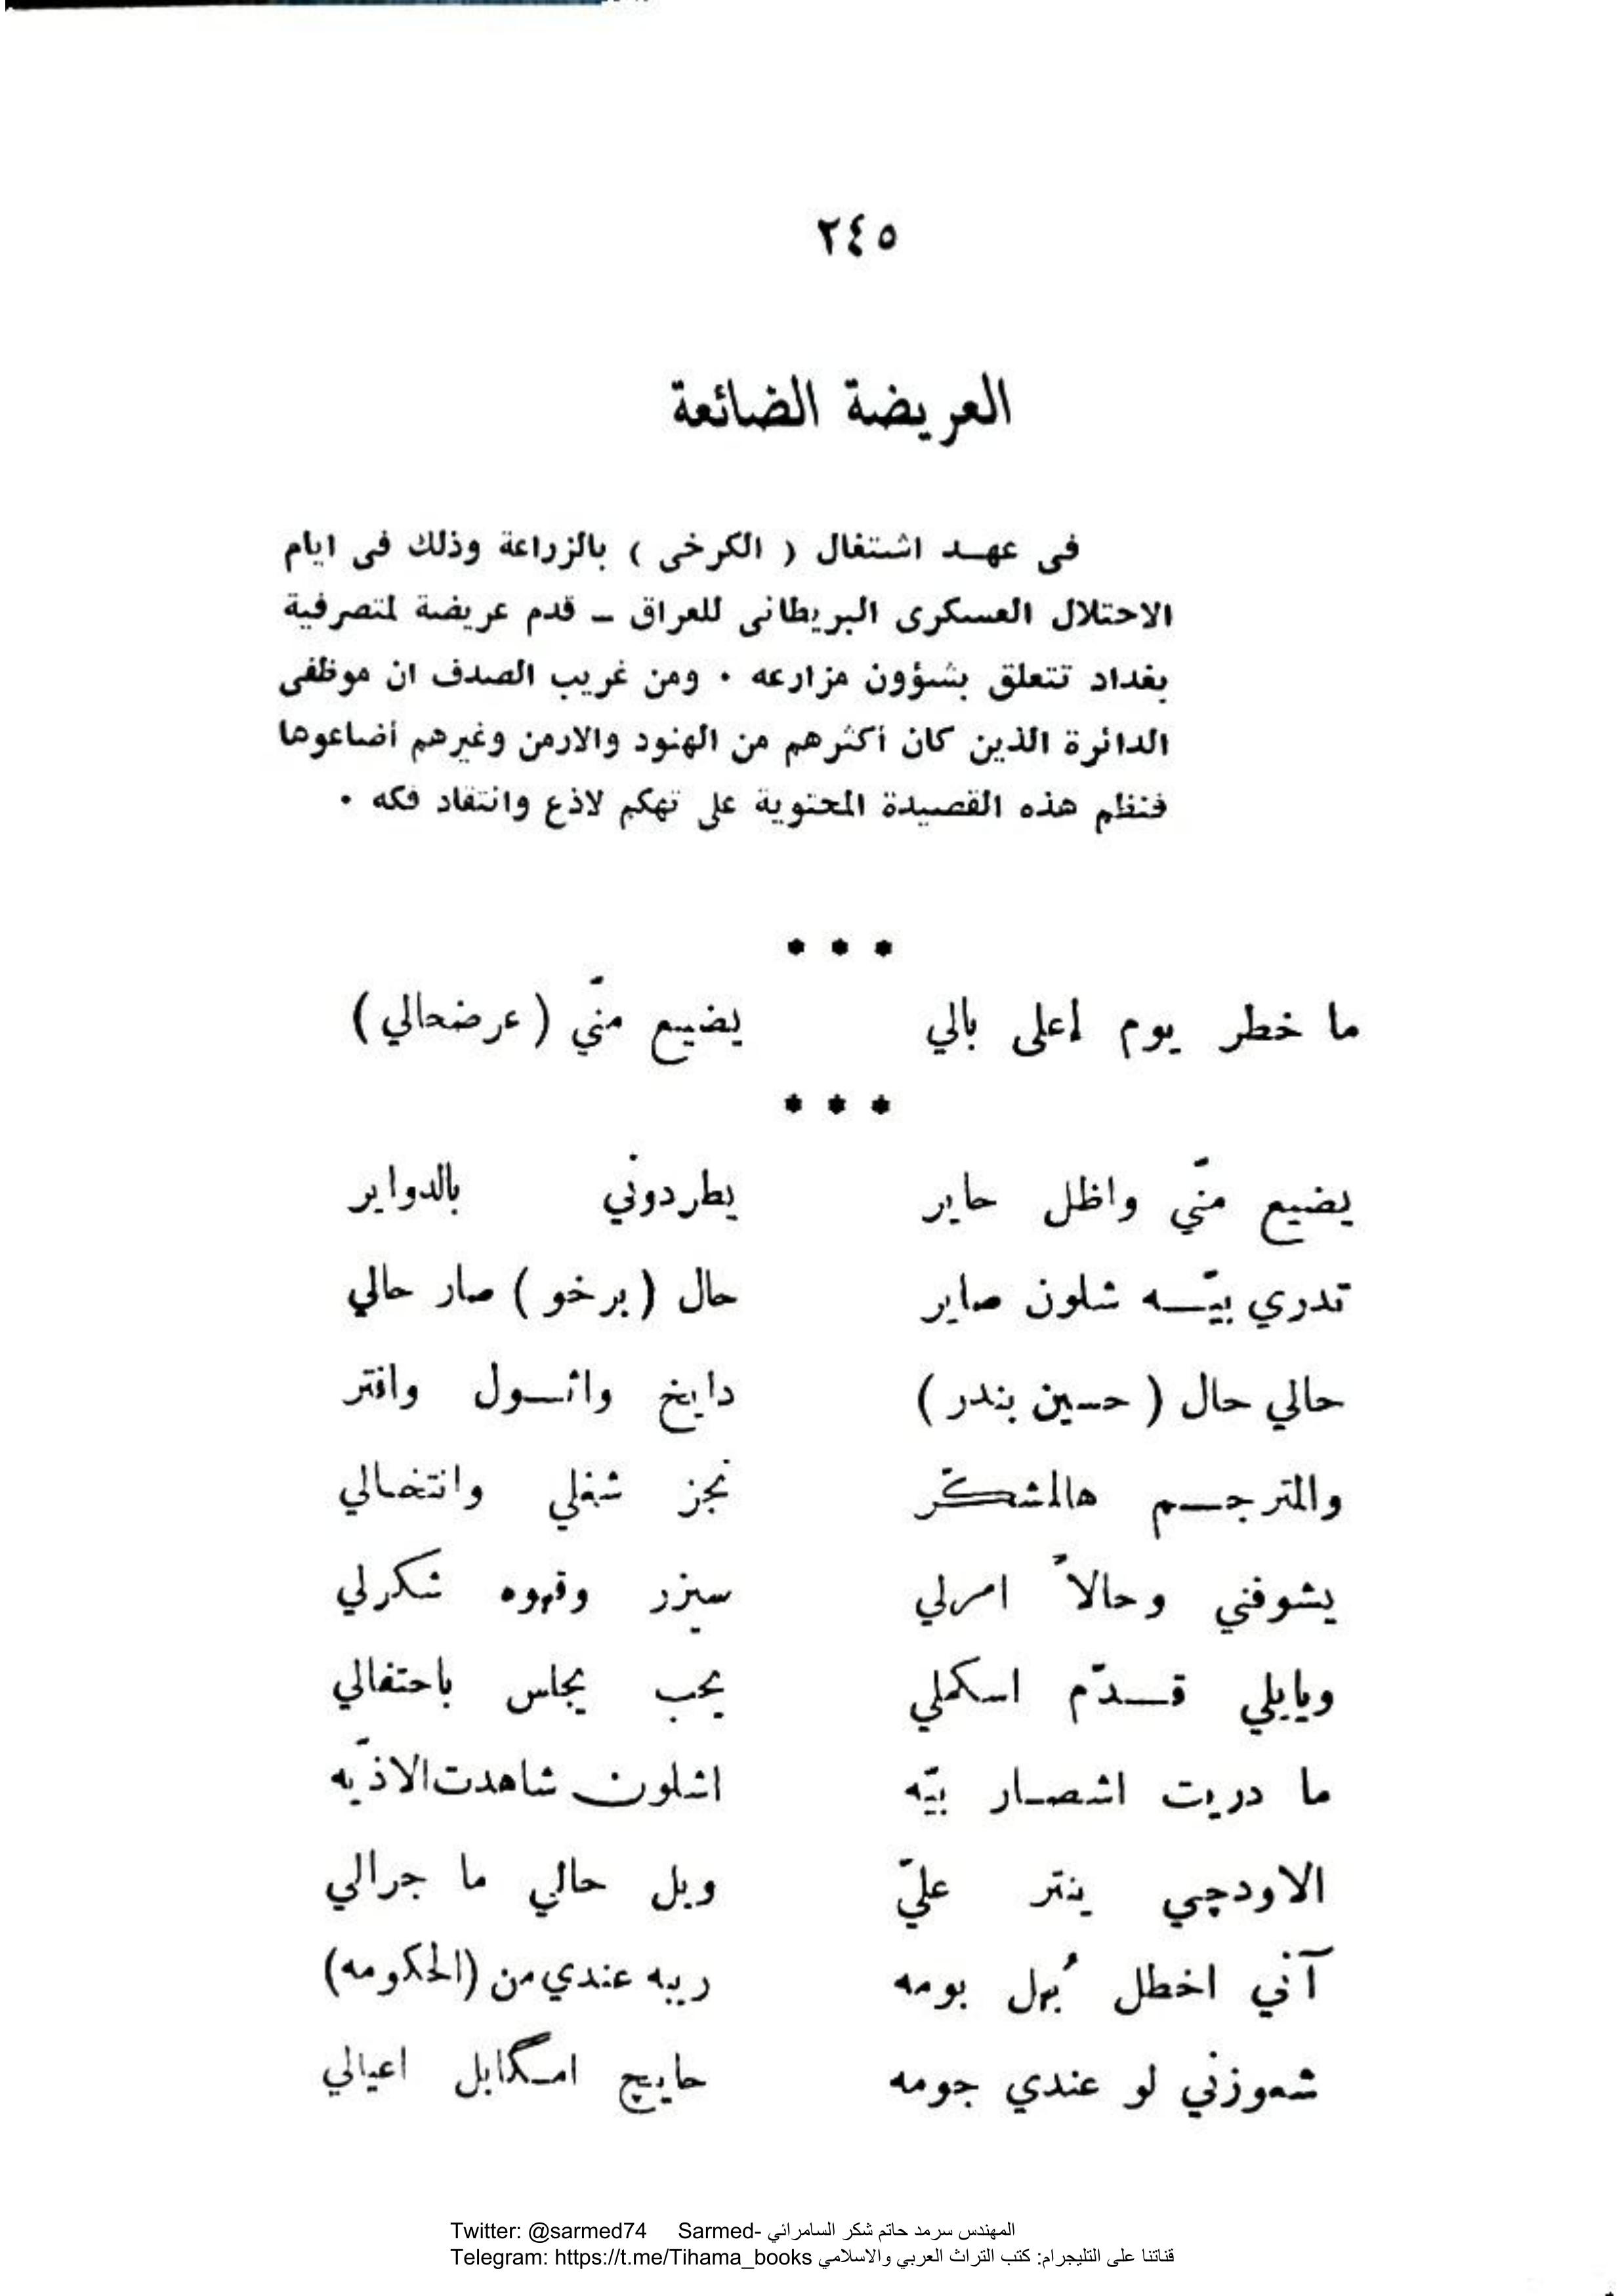 ٢٤٥
العريضة الضائعة
فى عهـد اشتغال ( الكرخى ) بالزراعة وذلك فى ايام
الاحتلال العسكرى البريطانى للعراق ــ قدم عريضة لمتصرفية
بغداد تتعلق بشؤون مزارعه ٠ ومن غريب الصدف ان موظفى
الدائرة الذين كان أكثرهم من الهنود والارمن وغيرهم أضاعوها
فنظم هذه القصيدة المحتوية على تهكم لاذع وانتقاد فكه ٠
* * *
ما خطر يوم إعلى بالي يضيـع منّي ( عرضحالي )
* * *
يضيع منّي واظل حاير يطردوني بالدواير
تدري بيّـــه شلون صاير حال ( برخو ) صار حالي
حالي حال ( حسين بندر ) دايخ واثـول وافتر
والمترجـــم هالمشكّر نجز شغلي وانتخالي
يشوفني وحالاً امرلي سيزر وقهوه شكرلي
ويايلي قـــدّم اسكملي يحب يجلس باحتفالي
ما دريت اشصـار بيّه اشلون شاهدت الاذيّه
الاودچي ينتر عليّ ويل حالي ما جرالي
آني اخطل بُهل بومه ريبه عندي من (الحكومه)
شعوزني لو عندي جومه حاييچ امـگابل اعيالي
Twitter: @sarmed74 Sarmed- المهندس سرمد حاتم شكر السامرائي
Telegram: https://t.me/Tihama_books قناتنا على التليجرام: كتب التراث العربي والاسلامي